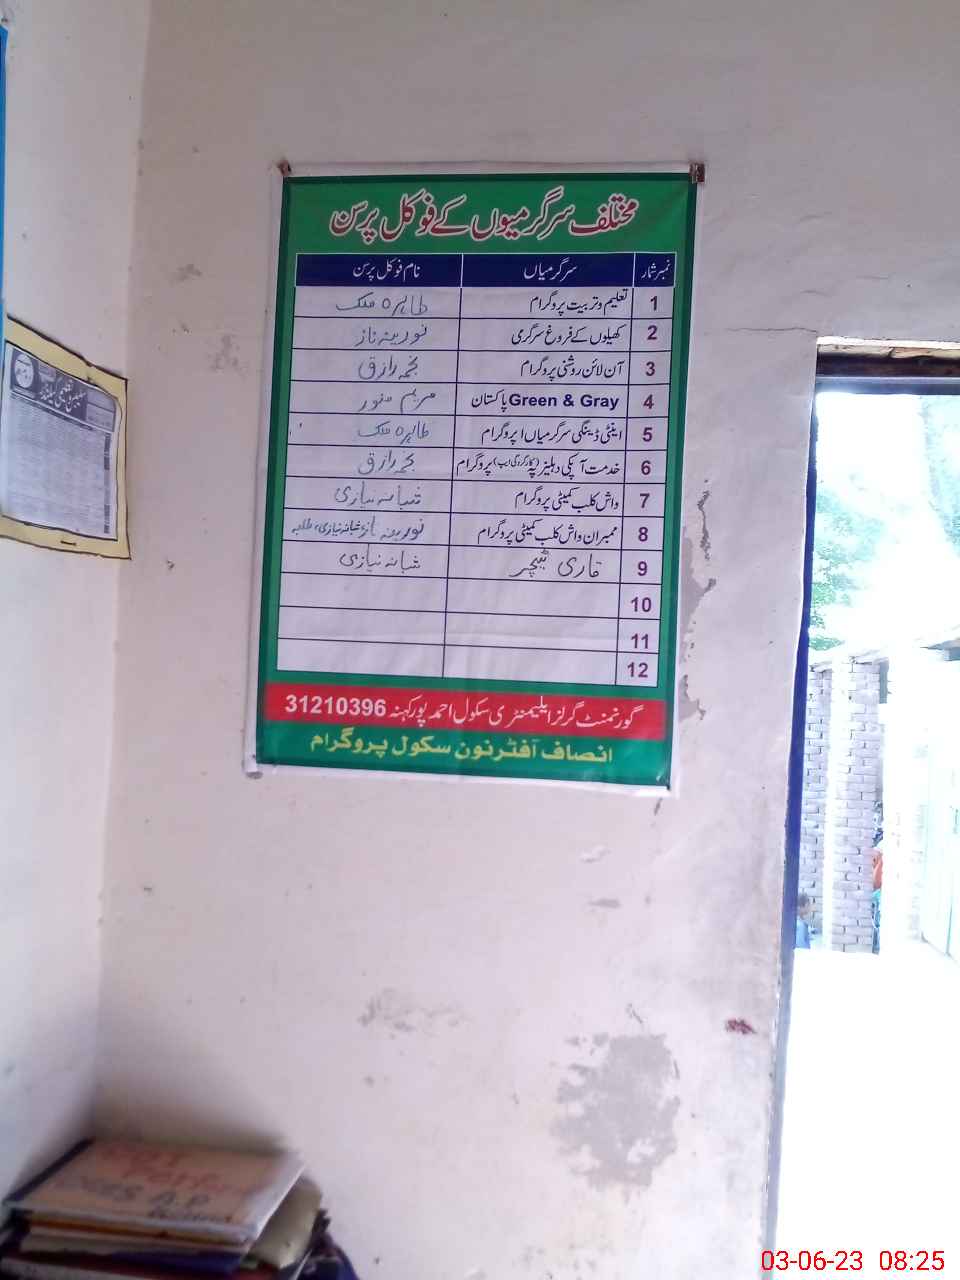 مختلف سرگرمیوں کے فوکل پرسن
نمبر شمار سرگرمیاں نام فوکل پرسن
1 تعلیم و تربیت پروگرام طاہرہ ملک
2 کھیلوں کے فروغ سرگرمی نورینہ ناز
3 آن لائن روشنی پروگرام نجمہ رازق
4 Green & Gray پاکستان مریم منور
5 اینٹی ڈینگی سرگرمیاں / پروگرام طاہرہ ملک
6 خدمت آپکی دہلیز پہ (کارکردگی ایپ) پروگرام نجمہ رازق
7 واش کلب کمیٹی پروگرام شبانہ نیازی
8 ممبران واش کلب کمیٹی پروگرام نورینہ ناز، شبانہ نیازی، طلبہ
9 قاری ٹیچر شبانہ نیازی
10
11
12
گورنمنٹ گرلز ایلیمنٹری سکول احمد پور کہنہ 31210396
انصاف آفٹر نون سکول پروگرام
03-06-23 08:25